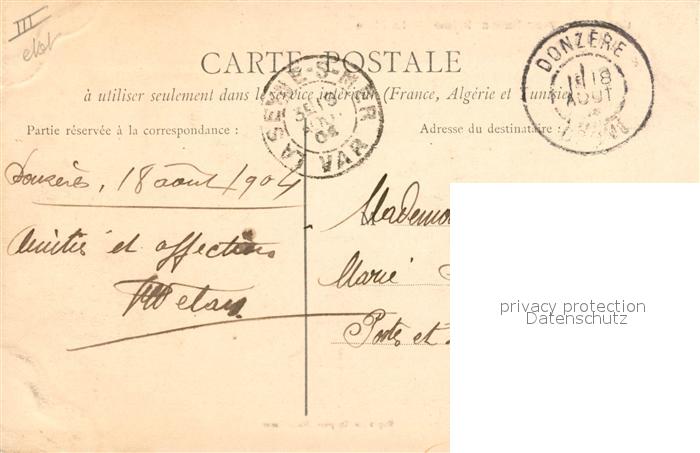 III
CARTE POSTALE
à utiliser seulement dans le service intérieur (France, Algérie et Tunisie)
Partie réservée à la correspondance :
Adresse du destinataire :
LA SEYNE-S-MER
VAR
DONZÈRE
18
AOUT
Donzère, 18 août 1904
Amitiés et affection
Mademo
Marie
Postes et
privacy protection
Datenschutz